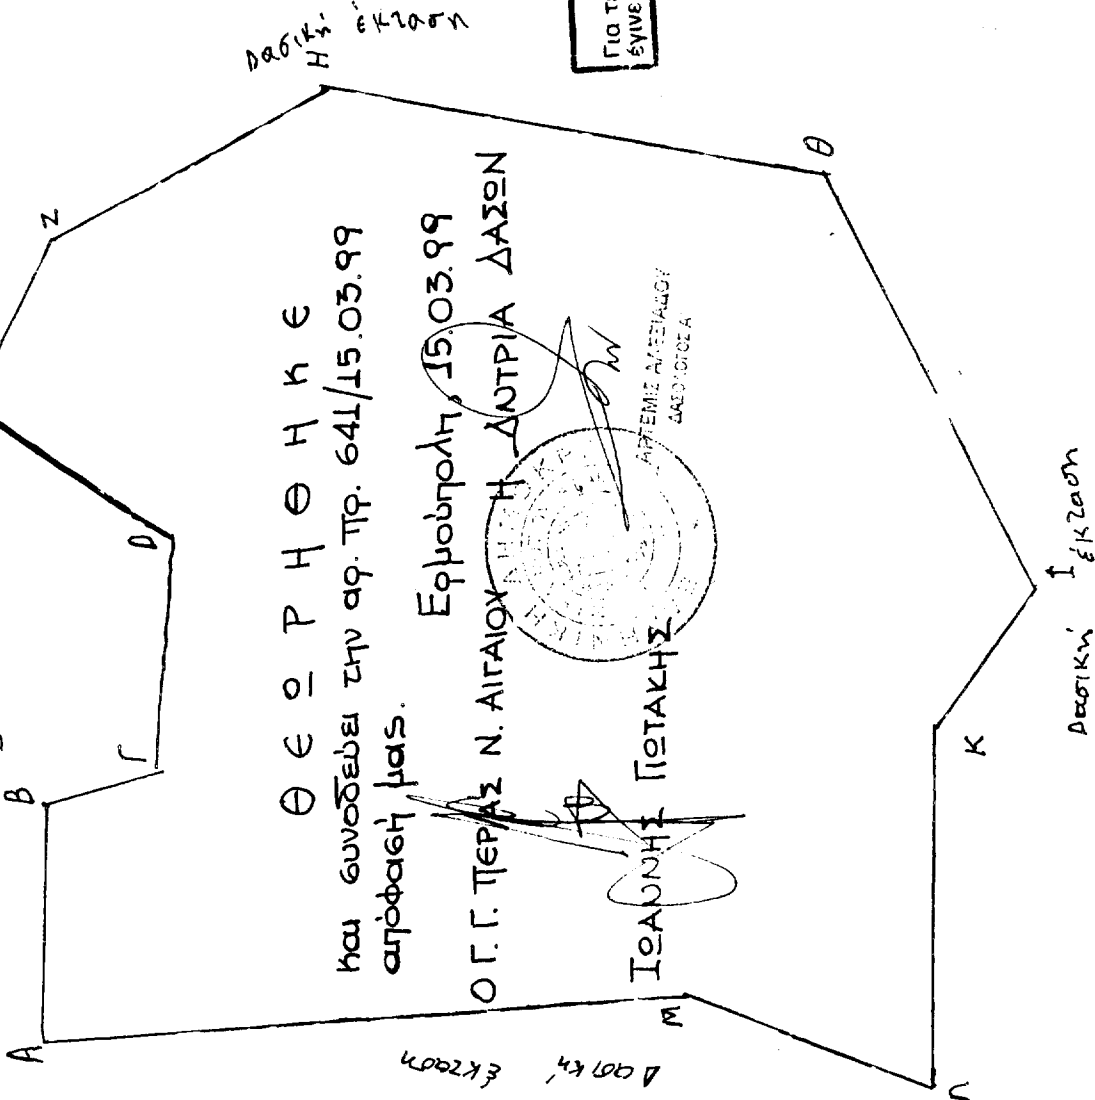 Δασική έκταση
Η
Για τ
έγινε
Θ
Ζ
Δ
Γ
Β
Α
Μ
Λ
Κ
Ι
ΘΕΩΡΗΘΗΚΕ
και συνοδεύει την αρ. πρ. 641/15.03.99
απόφασή μας.
Ερμούπολη, 15.03.99
Ο Γ.Γ. ΠΕΡ/ΑΣ Ν. ΑΙΓΑΙΟΥ Η Δ/ΝΤΡΙΑ ΔΑΣΩΝ
ΙΩΑΝΝΗΣ ΓΙΩΤΑΚΗΣ
ΑΡΤΕΜΙΣ ΑΛΕΞΙΑΔΟΥ
ΔΑΣΟΛΟΓΟΣ Α
Δασική έκταση
Δασική έκταση